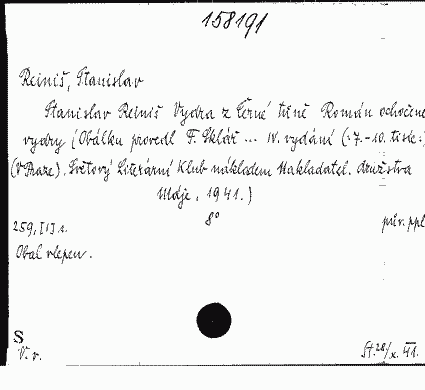 158191
Reiniš, Stanislav
Stanislav Reiniš Vydra z Černé tůně Román ochočené
vydry (Obálku provedl F. Sklář ... IV. vydání (:7.-10. tisíc:)
(V Praze). Světový Literární Klub nákladem Nakladatel. družstva
Máje, 1941.)
8°
259, [1] s. pův. ppl
Obal vlepen.
S
V. v. St. 28/X. 41.